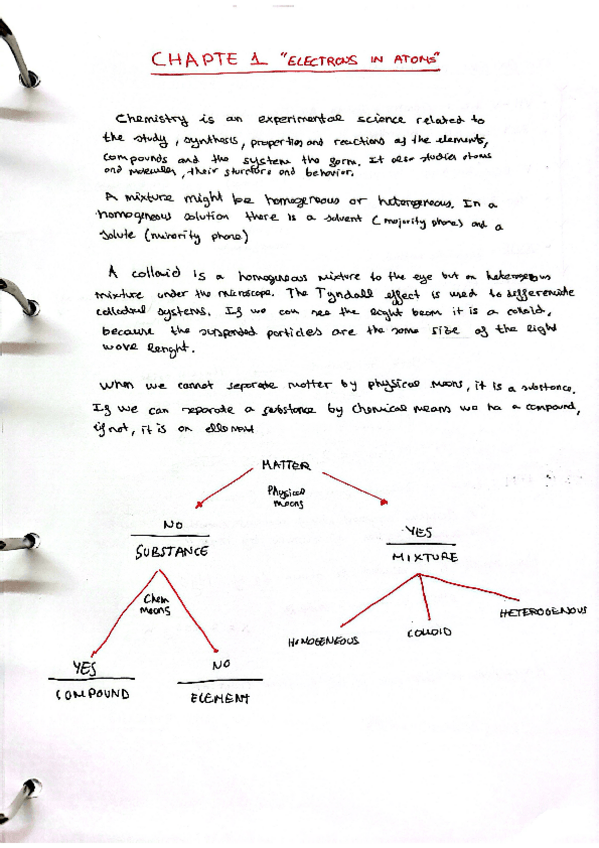 CHAPTE 1 "ELECTRONS IN ATOMS"
Chemistry is an experimental science related to
the study, synthesis, properties and reactions of the elements,
compounds and the system the form. It also studies atoms
and molecules, their and behavior.
A mixture might be homogeneous or heterogeneous. In a
homogeneous solution there is a solvent (majority phase) and a
solute (minority phase)
A colloid is a homogeneous mixture to the eye but an heterogeneous
mixture under the microscope. The Tyndall effect is used to differenciate
systems. If we can see the light beam it is a colloid,
because the suspended particles are the same size of the light
wave lenght.
When we cannot seperate matter by physical means, it is a substance.
If we can separate a substance by chemical means we ha a compound,
if not, it is an element
MATTER
Physical
means
NO YES
SUBSTANCE MIXTURE
Chem
means
HOMOGENEOUS COLLOID HETEROGENOUS
YES NO
COMPOUND ELEMENT